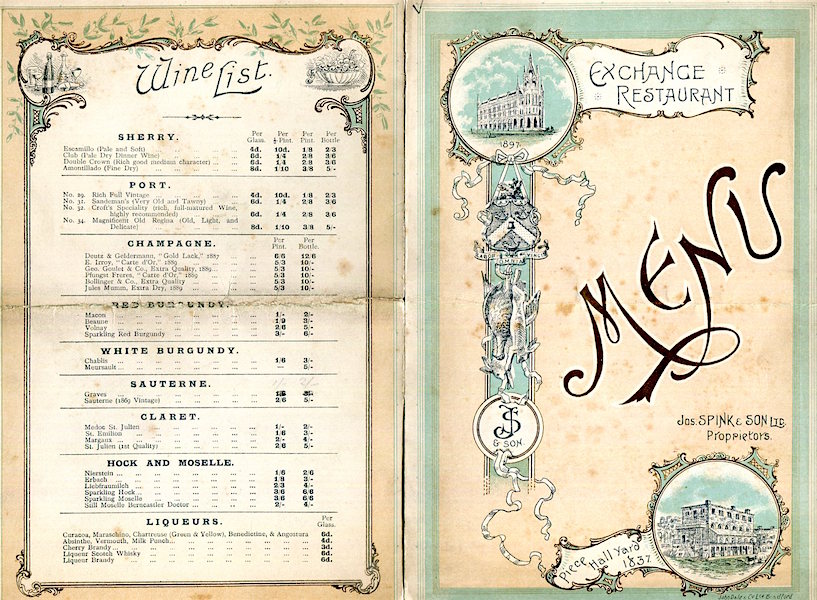 Wine List.
SHERRY. Per Glass. Per ½-Pint. Per Pint. Per Bottle
Escamillo (Pale and Soft) 4d. 10d. 1/8 2/3
Club (Pale Dry Dinner Wine) ... 6d. 1/4 2/8 3/6
Double Crown (Rich good medium character) ... 6d. 1/4 2/8 3/6
Amontillado (Fine Dry) ... 8d. 1/10 3/8 5/-
PORT.
No. 29. Rich Full Vintage ... 4d. 10d. 1/8 2/3
No. 31. Sandeman's (Very Old and Tawny) ... 6d. 1/4 2/8 3/6
No. 32. Croft's Speciality (rich, full-matured Wine,
highly recommended) 6d. 1/4 2/8 3/6
No. 34. Magnificent Old Regina (Old, Light, and
Delicate) 8d. 1/10 3/8 5/-
CHAMPAGNE. Per Pint. Per Bottle.
Deutz & Geldermann, "Gold Lack," 1887 6/6 12/6
E. Irroy, "Carte d'Or," 1889 ... 5/3 10/-
Geo. Goulet & Co., Extra Quality, 1889 ... 5/3 10/-
Pfungst Freres, "Carte d'Or," 1889 ... 5/3 10/-
Bollinger & Co., Extra Quality ... 5/3 10/-
Jules Mumm, Extra Dry, 1889 ... 5/3 10/-
RED BURGUNDY.
Macon ... 1/- 2/-
Beaune ... 1/9 3/-
Volnay ... 2/6 5/-
Sparkling Red Burgundy ... 3/- 6/-
WHITE BURGUNDY.
Chablis ... 1/6 3/-
Meursault ... — 5/-
SAUTERNE.
Graves ...
Sauterne (1869 Vintage) ... 2/6 5/-
CLARET.
Medoc St. Julien ... 1/- 2/-
St. Emilion ... 1/6 3/-
Margaux ... 2/- 4/-
St. Julien (1st Quality) ... 2/6 5/-
HOCK AND MOSELLE.
Nierstein ... 1/6 2/6
Erbach ... 1/8 3/-
Liebfraumilch ... 2/3 4/-
Sparkling Hock ... 3/6 6/6
Sparkling Moselle ... 3/6 6/6
Still Moselle Berncastler Doctor ... 2/- 4/-
LIQUEURS. Per Glass.
Curacoa, Maraschino, Chartreuse (Green & Yellow), Benedictine, & Angostura 6d.
Absinthe, Vermouth, Milk Punch ... 4d.
Cherry Brandy ... 3d.
Liqueur Scotch Whisky ... 6d.
Liqueur Brandy ... 6d.
EXCHANGE
RESTAURANT
1897
MENU
JS
& SON.
Jos. SPINK & SON LTD.
Proprietors.
Piece Hall Yard
1837
John Dale & Co Ltd Bradford